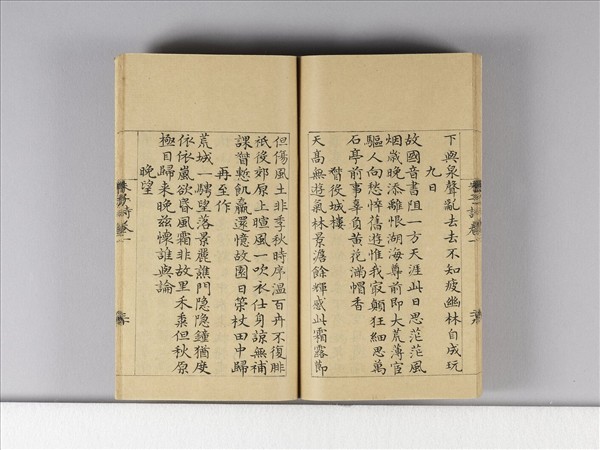 下與泉聲亂去去不知疲幽林自成玩
九日
故國音書阻一方天涯此日思茫茫風
烟歲晚添離恨湖海尊前即大荒薄宦
驅人向愁悴舊遊惟我冣顛狂細思萬
石亭前事辜負黃花滿帽香
督役城樓
天高無遊氣林景澹餘輝感此霜露節
但傷風土非季秋時序溫百卉不復腓
祗役郊原上暄風一吹衣仕身諒無補
課督慙飢羸還憶故園日策杖田中歸
再至作
荒城一騁望落景麗譙門隱隱鐘猶度
依依嵐欲昏風霜非故里禾黍但秋原
極目歸來晚茲懷誰與論
晚望